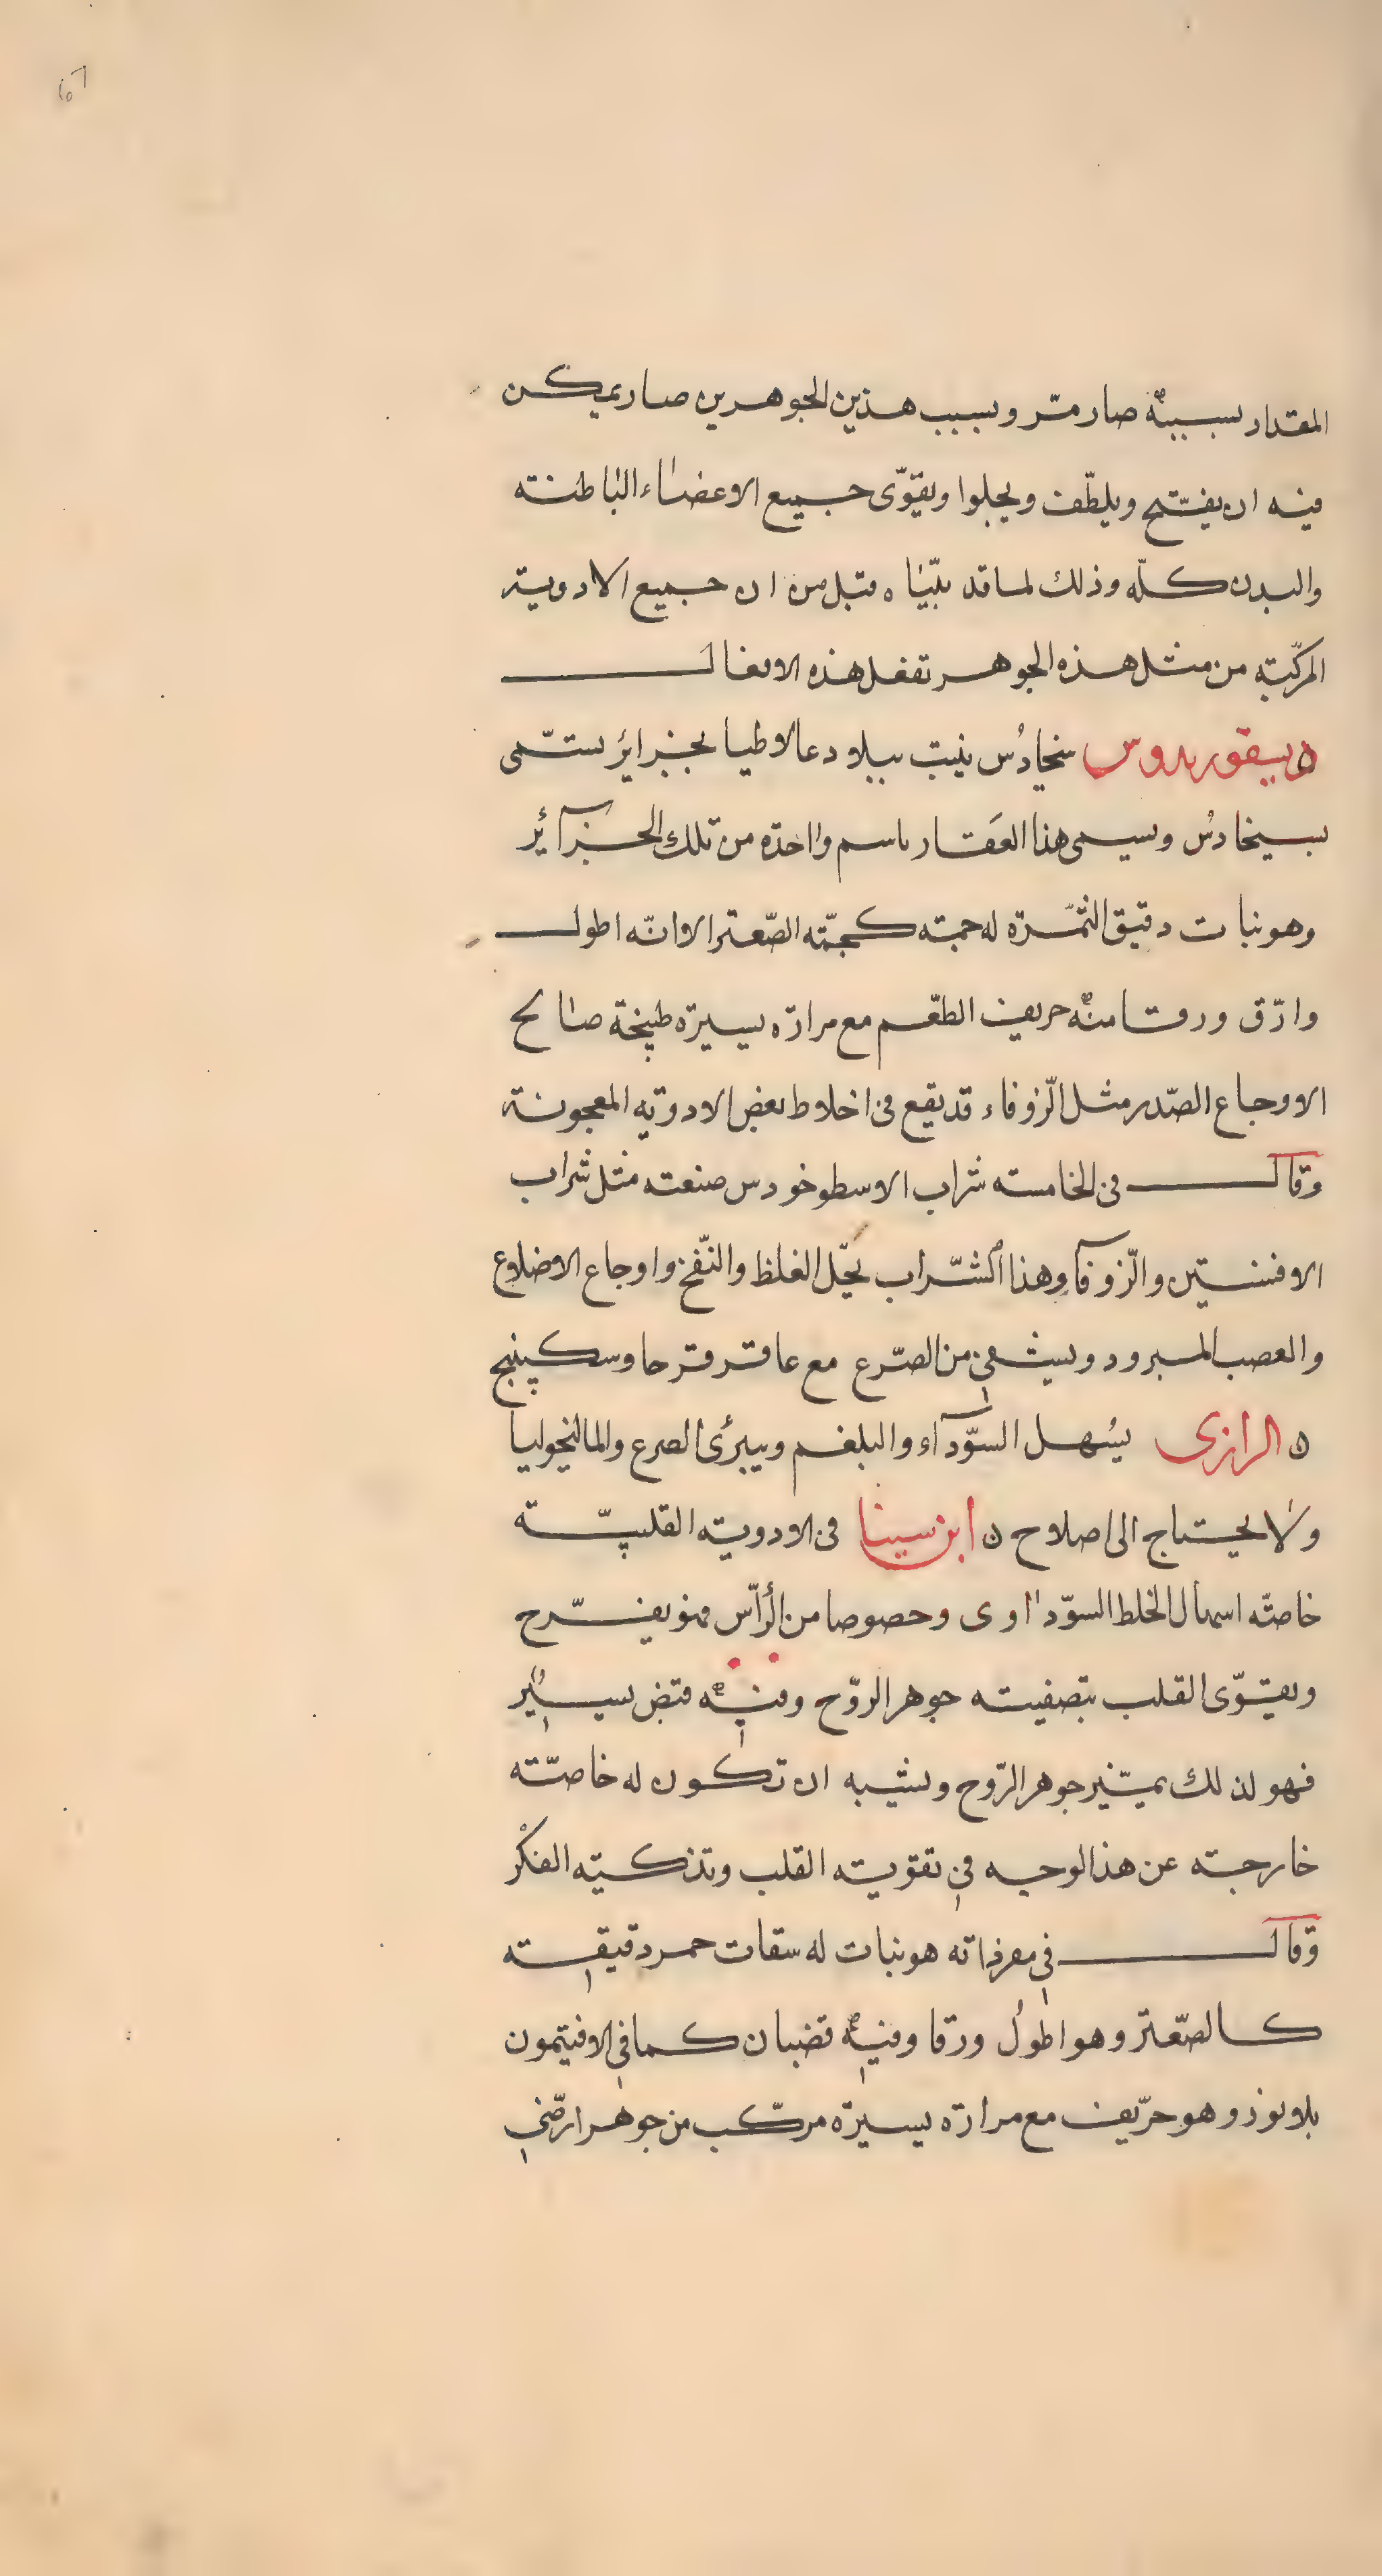 المقدار بسببه صار مر وبسبب هذين الجوهرين صار يمكن
فيه ان يفتح ويلطف ويجلوا ويقوّى جميع الاعضاء الباطنة
والبدن كلّه وذلك لما قد بيّناه قبل من ان جميع الادوية
المركّبة من مثل هذه الجوهر تفعل هذه الافعال
ديسقوريدوس سنخادُس ينبت ببلاد عالاطيا بجزاير ستّمى
سيخادُس ويسمى هذا العَقار باسم واحدة من تلك الجزآئر
وهو نبات دقيق الثمرة له جمة كجمّة الصّعتر الا انّه اطول
وادّق ورقا منه حريف الطّعم مع مرارة يسيرة طبيخة صالح
الاوجاع الصّدر مثل الزّوفاء قد يقع فى اخلاط بعض الادوية المعجونة
وقال فى الخامسة شراب الاسطوخودس صنعته مثل شراب
الافسنتين والزّوفآ وهذا الشّراب يحّلل الغلظ والنّفخ واوجاع الاضلاع
والعصب المبرود ويشفى من الصّرع مع عاقر قرحا وسكبينج
الرازى يسُهل السّودآء والبلغم ويبرئ الصرع والمالنخوليا
ولا يحتاج الى اصلاح ابن سينا فى الادوية القلبيّة
خاصّة اسهال الخلط السوّداوى وحصوصا من الرأس فهو يفرّح
ويقوّى القلب بتصفيته جوهر الروّح وفيه قبض يسير
فهو لذلك يمتّن جوهر الرّوح ويشبه ان تكون له خاصّته
خارجة عن هذا لوجه فى تقوية القلب وتذكية الفكْر
وقال فى مفرداته هو نبات له سقات حمر دقيقة
كالصّعتر وهو اطول ورقا وفيه قضبان كما فى الافيتمون
بلا نور وهو حرّيف مع مرارة يسيرة مركّب من جوهر ارضّى